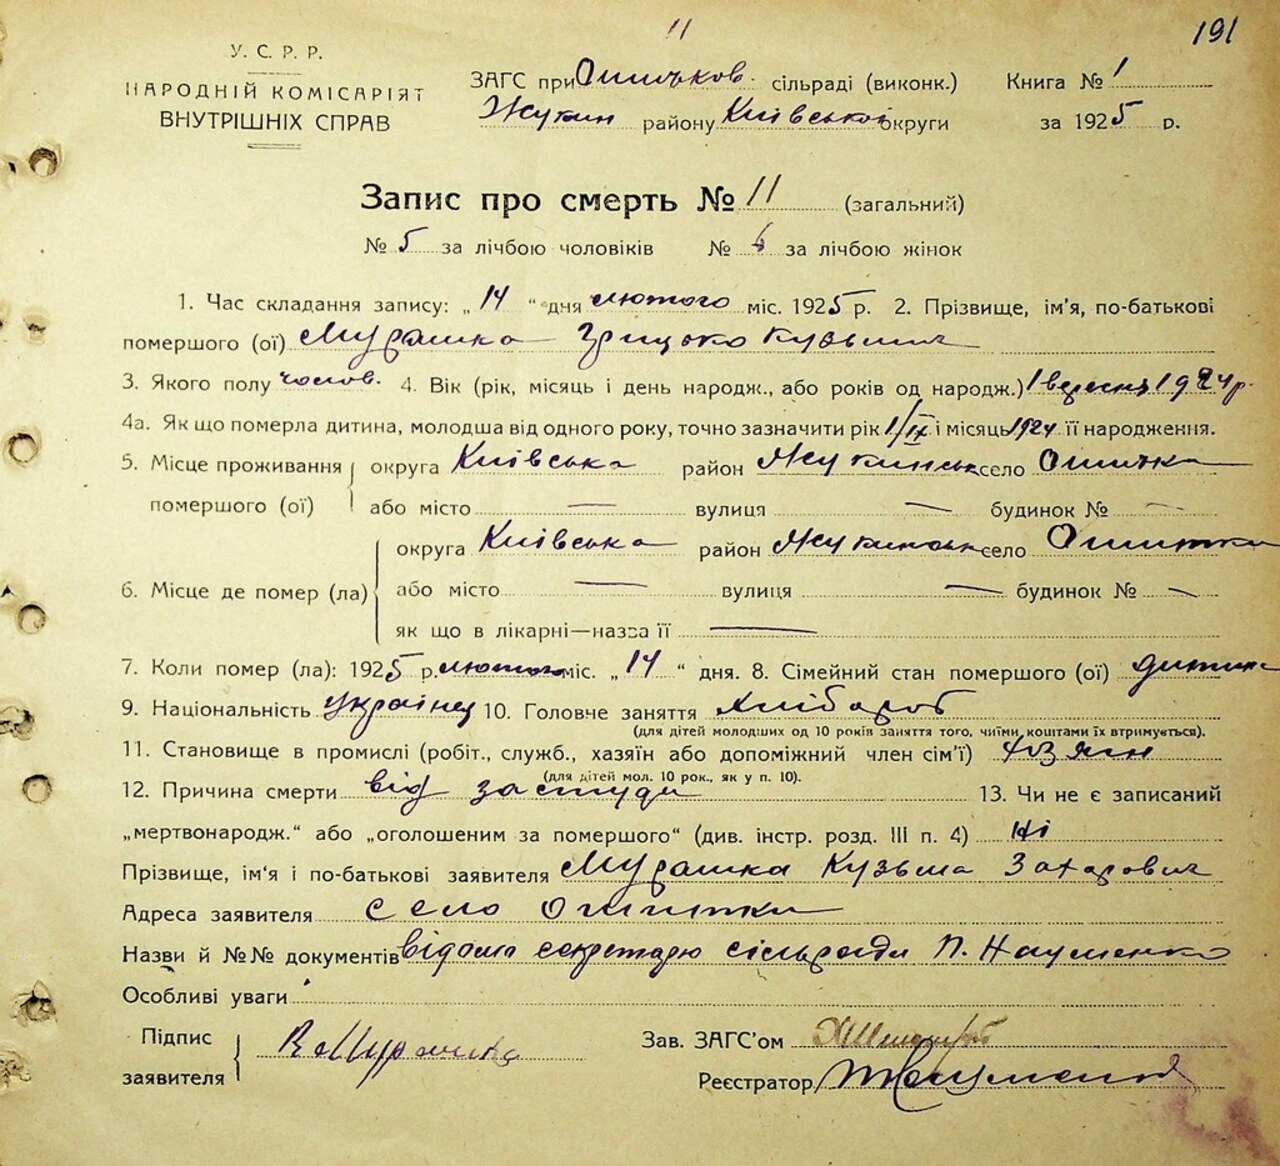 11
191
У. С. Р. Р.
НАРОДНІЙ КОМІСАРІЯТ
ВНУТРІШНІХ СПРАВ
ЗАГС при Ошитьков. сільраді (виконк.)
Жукин району Київської округи
Книга № 1
за 1925 р.
Запис про смерть № 11 (загальний)
№ 5 за лічбою чоловіків № 6 за лічбою жінок
1. Час складання запису: „14“ дня лютого міс. 1925 р. 2. Прізвище, ім'я, по-батькові
помершого (ої) Мурашка Грицько Кузьмич
3. Якого полу чолов. 4. Вік (рік, місяць і день народж., або років од народж.) 1 вересня 1924 р.
4а. Як що померла дитина, молодша від одного року, точно зазначити рік 1/IX і місяць 1924 її народження.
5. Місце проживання помершого (ої) округа Київська район Жукинськ село Ошитки
або місто — вулиця — будинок № —
6. Місце де помер (ла) округа Київська район Жукинськ село Ошитки
або місто — вулиця — будинок № —
як що в лікарні—назва її —
7. Коли помер (ла): 1925 р. лютого міс. „14“ дня. 8. Сімейний стан помершого (ої) дитина
9. Національність українец 10. Головне заняття хлібороб
(для дітей молодших од 10 років заняття того, чиїми коштами їх втримується).
11. Становище в промислі (робіт., служб., хазяїн або допоміжний член сім'ї) хозяин
(для дітей мол. 10 рок., як у п. 10).
12. Причина смерти від застуди 13. Чи не є записаний
„мертвонародж.“ або „оголошеним за помершого“ (див. інстр. розд. III п. 4) Ні
Прізвище, ім'я і по-батькові заявителя Мурашка Кузьма Захарович
Адреса заявителя село Ошитки
Назви й №№ документів відомо секретарю сільради П. Науменко
Особливі уваги
Підпис заявителя Мурашка
Зав. ЗАГС'ом
Реєстратор Науменко